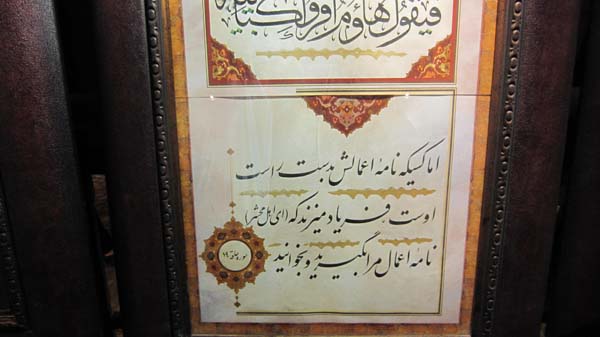 فيقول هاؤم اقرؤا كتابيه
اما کسیکه نامهٔ اعمالش بدست راست
اوست فریاد میزند که (ای اهل محشر)
نامهٔ اعمال مرا بگیرید و بخوانید
سوره حاقه ۱۹